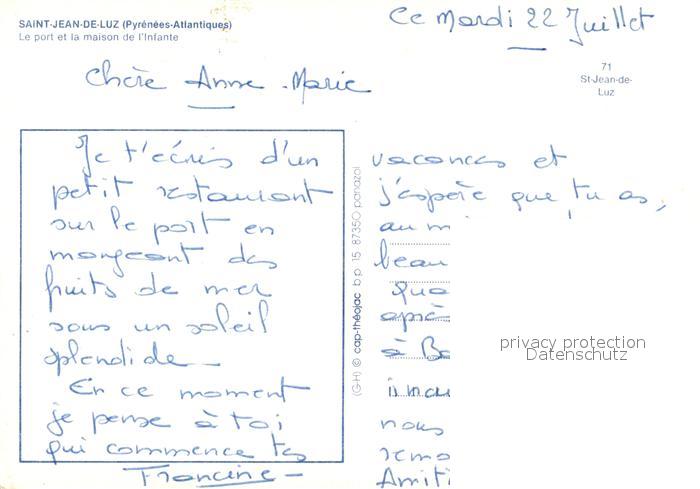 SAINT-JEAN-DE-LUZ (Pyrénées-Atlantiques)
Le port et la maison de l'Infante
Ce Mardi 22 Juillet
71
St-Jean-de-
Luz
Chère Anne-Marie
Je t'écris d'un
petit restaurant
sur le port en
mangeant des
fruits de mer
sous un soleil
splendide -
En ce moment
je pense à toi
qui commence tes
vacances et
j'espère que tu as,
au
beau
Qua
après
à Ba
nous
remo
Amiti
Francine -
(G-H) © cap-théojac b p 15 87350 panazol
privacy protection
Datenschutz